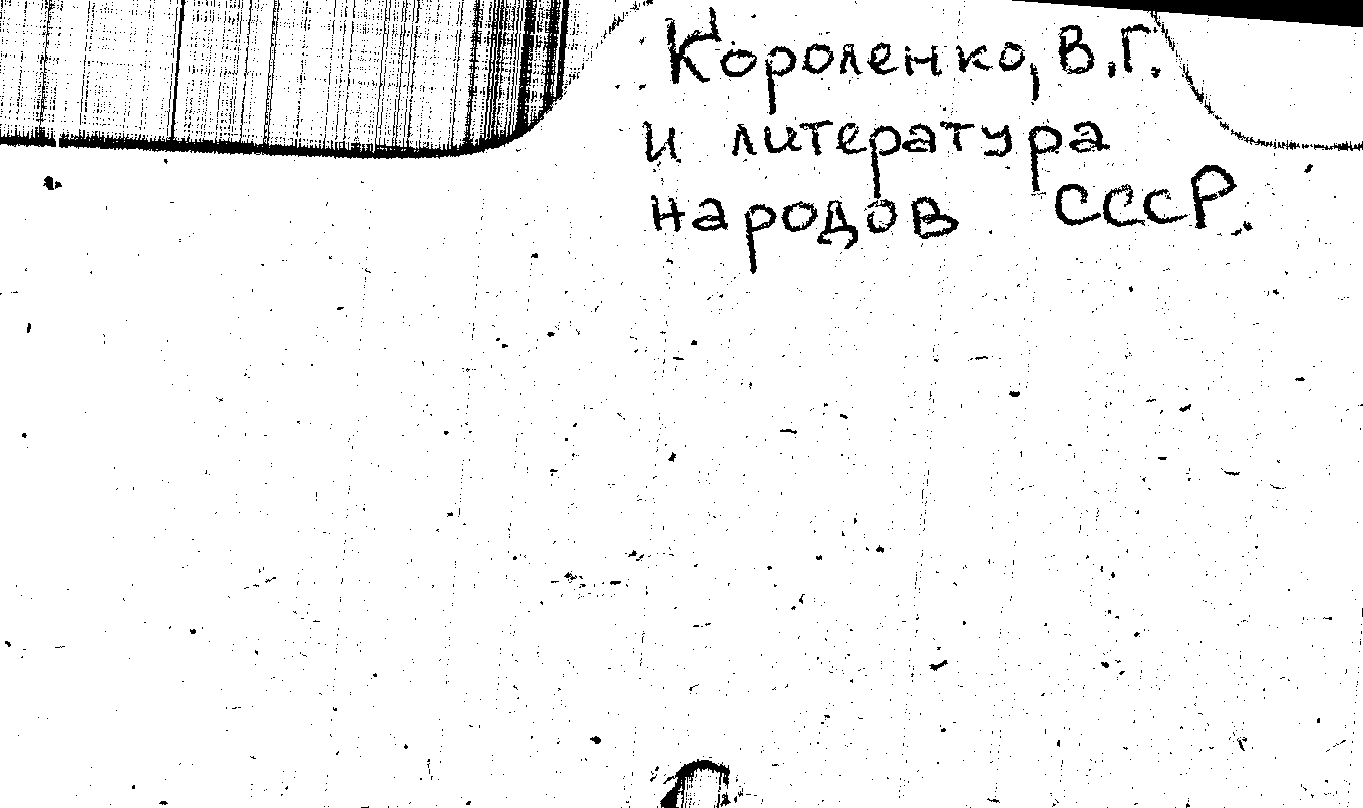 Короленко, В.Г.
и литература
народов СССР.